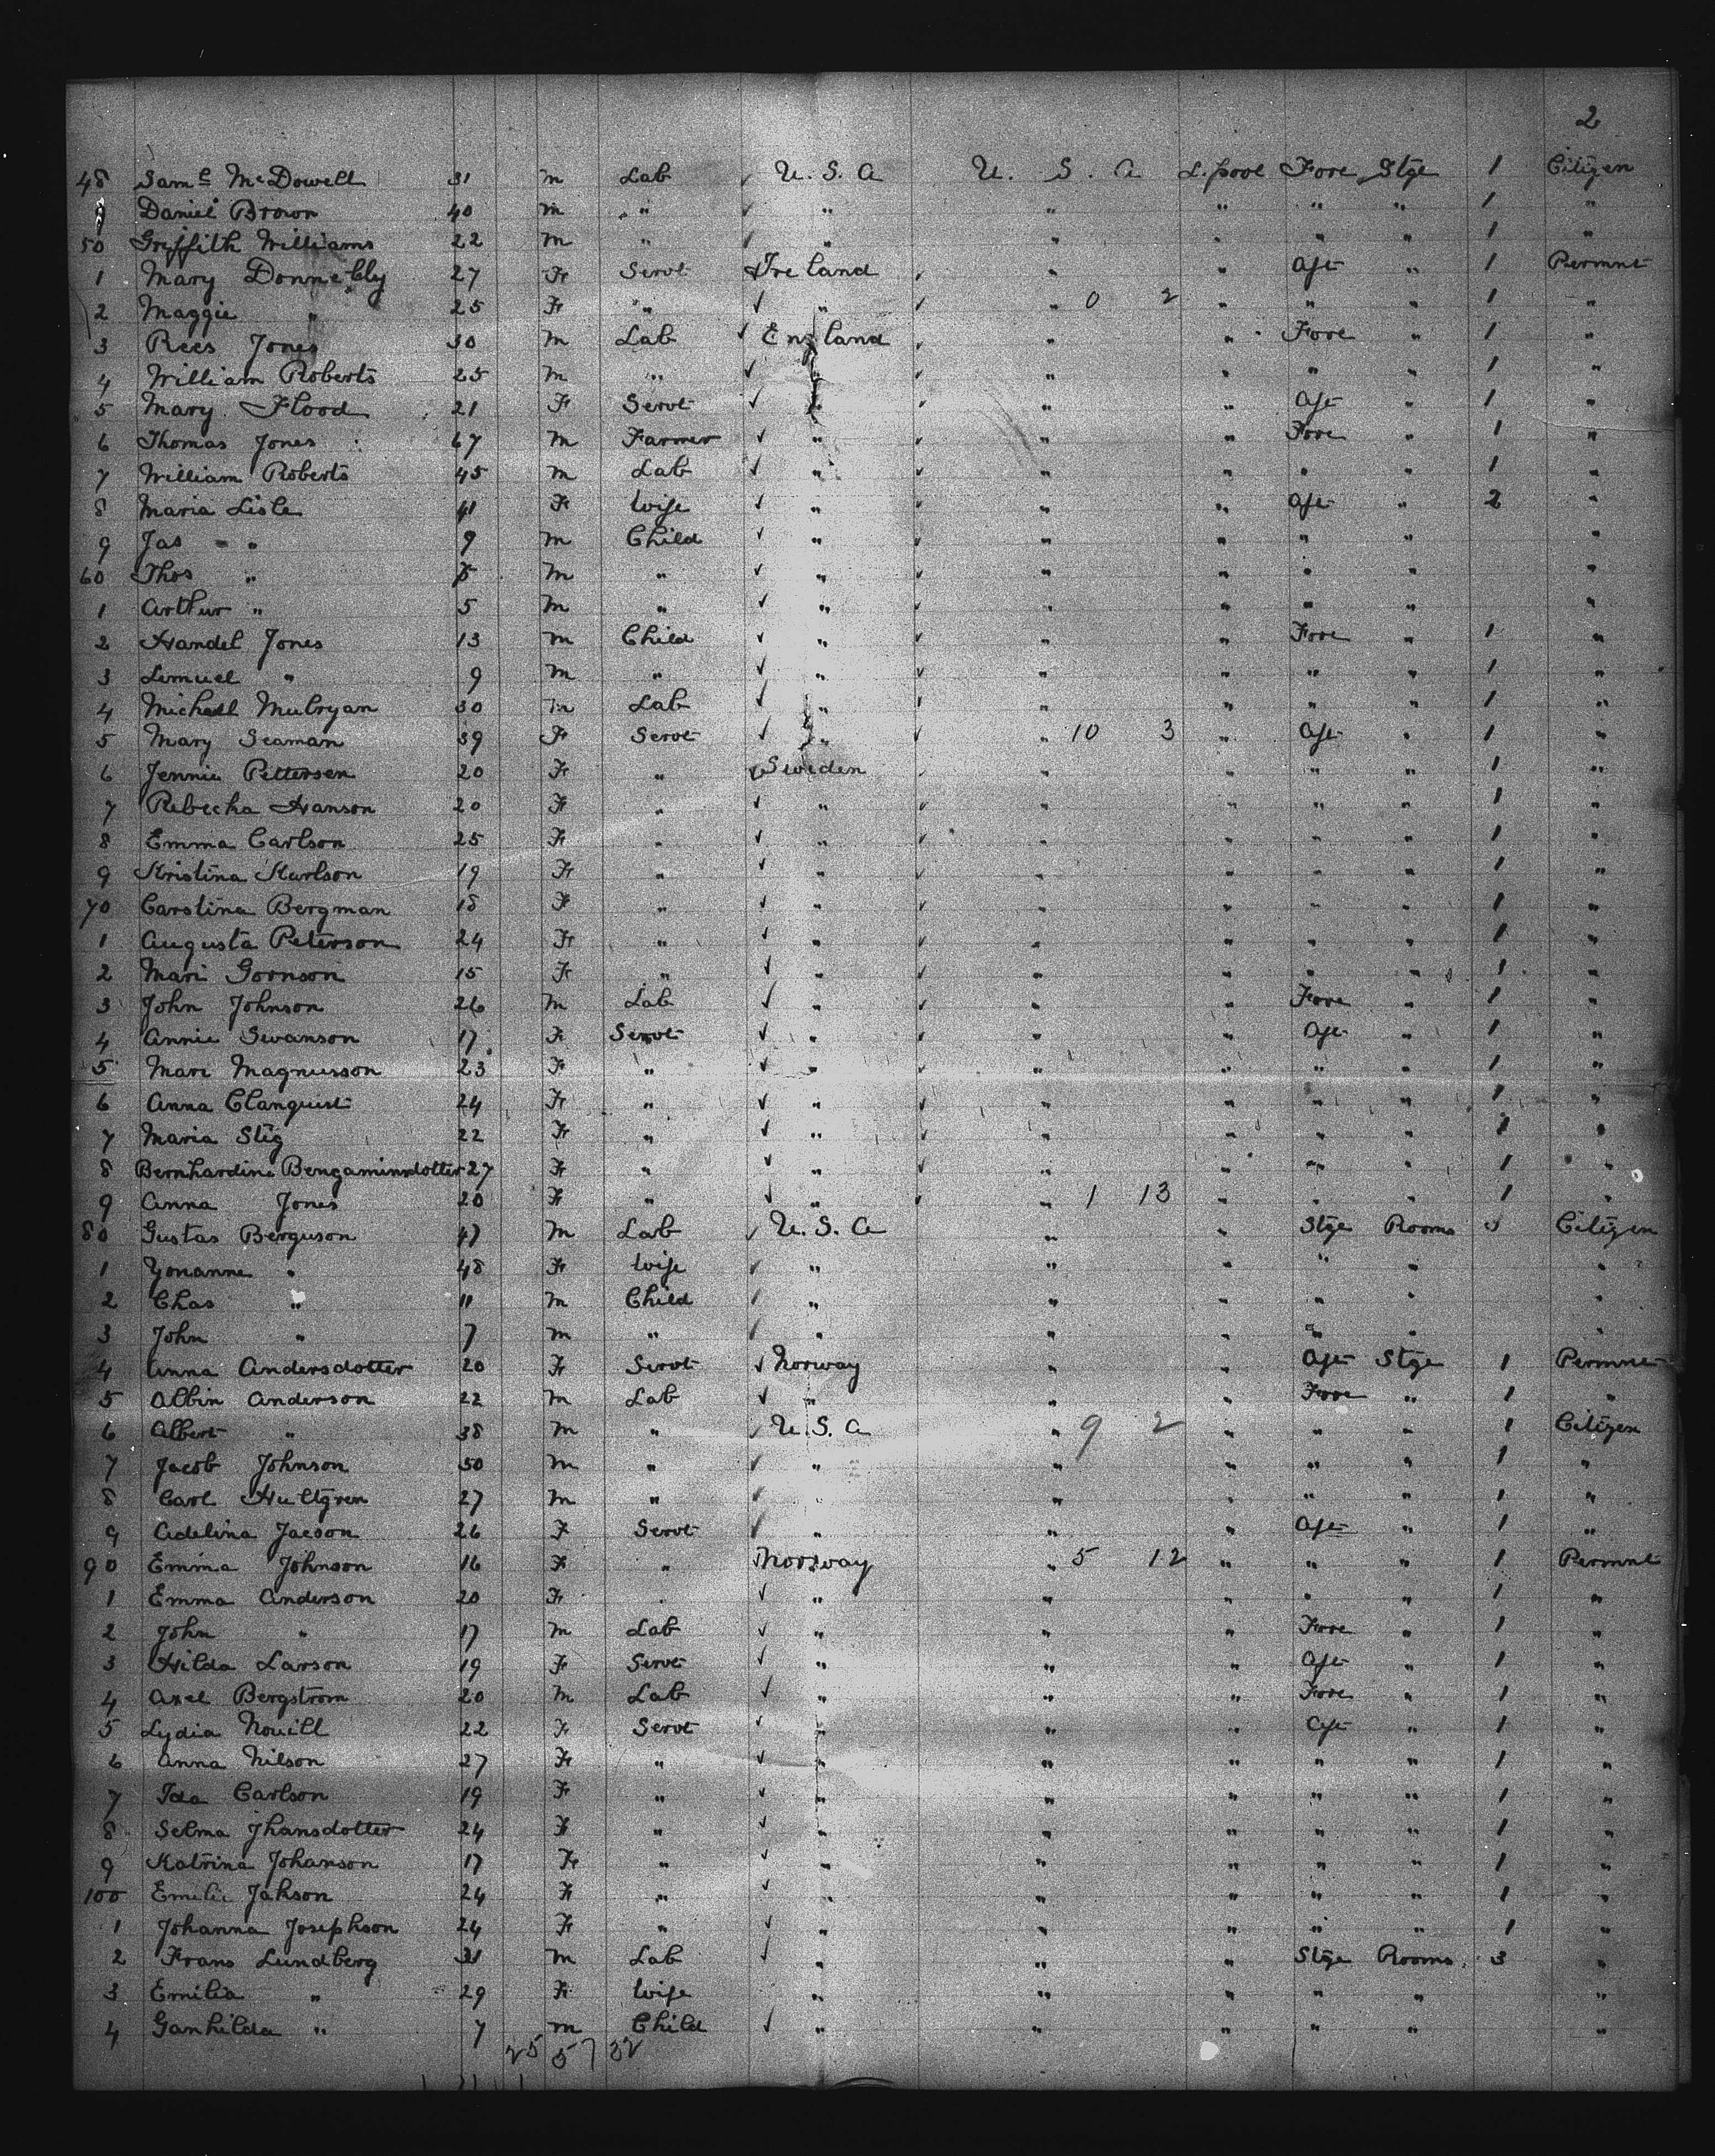 2
48 Saml McDowell 31 m Lab U. S. A U. S. A L.pool Fore Stge 1 Citizen
9 Daniel Brown 40 m " " " " " " 1 "
50 Griffith Williams 22 m " " " " " " 1 "
1 Mary Donnelly 27 F Servt Ireland " " Aft " 1 Permnt
2 Maggie " 25 F " " " 0 2 " " " 1 "
3 Rees Jones 30 m Lab England " " Fore " 1 "
4 William Roberts 25 m " " " " " " 1 "
5 Mary Flood 21 F Servt " " " Aft " 1 "
6 Thomas Jones 67 m Farmer " " " Fore " 1 "
7 William Roberts 45 m Lab " " " " " 1 "
8 Maria Lisle 41 F Wife " " " Aft " 2 "
9 Jas " 9 m Child " " " " " "
60 Thos " m " " " " " " "
1 Arthur " 5 m " " " " " " "
2 Handel Jones 13 m Child " " " Fore " 1 "
3 Lemuel " 9 m " " " " " " 1 "
4 Michall Mulryan 30 m Lab " " " " " 1 "
5 Mary Seaman 39 F Servt " " 10 3 " Aft " 1 "
6 Jennie Pettersen 20 F " Sweden " " " " 1 "
7 Rebecka Hanson 20 F " " " " " " 1 "
8 Emma Carlson 25 F " " " " " " 1 "
9 Kristina Karlson 19 F " " " " " " 1 "
70 Carolina Bergman 18 F " " " " " " 1 "
1 Augusta Peterson 24 F " " " " " " 1 "
2 Mari Gornson 15 F " " " " " " 1 "
3 John Johnson 26 m Lab " " " Fore " 1 "
4 Annie Swanson 17 F Servt " " " Aft " 1 "
5 Mari Magnusson 23 F " " " " " " 1 "
6 Anna Clanquist 24 F " " " " " " 1 "
7 Maria Stig 22 F " " " " " " 1 "
8 Bernhardina Bengaminsdotter 27 F " " " " " " 1 "
9 Anna Jones 20 F " " " 1 13 " " " 1 "
80 Gustas Berguson 47 m Lab U. S. A " " Stge Rooms 3 Citizen
1 Yonanne " 48 F Wife " " " " " "
2 Chas " 11 m Child " " " " " "
3 John " 7 m " " " " " " "
4 Anna Andersdotter 20 F Servt Norway " " Aft Stge 1 Permnt
5 Albin Anderson 22 m Lab " " " Fore " 1 "
6 Albert " 38 m " U. S. A " 9 2 " " " 1 Citizen
7 Jacob Johnson 50 m " " " " " " 1 "
8 Carl Hultgren 27 m " " " " " " 1 "
9 Adelina Jacson 26 F Servt " " " Aft " 1 "
90 Emma Johnson 16 F " Norway " 5 12 " " " 1 Permnt
1 Emma Anderson 20 F " " " " " " 1 "
2 John " 17 m Lab " " " Fore " 1 "
3 Hilda Larson 19 F Servt " " " Aft " 1 "
4 Axel Bergstrom 20 m Lab " " " Fore " 1 "
5 Lydia Nouill 22 F Servt " " " Aft " 1 "
6 Anna Nilson 27 F " " " " " " 1 "
7 Ida Carlson 19 F " " " " " " 1 "
8 Selma Jhansdotter 24 F " " " " " " 1 "
9 Katrina Johanson 17 F " " " " " " 1 "
100 Emilie Jakson 24 F " " " " " " 1 "
1 Johanna Josephson 24 F " " " " " " 1 "
2 Frans Lundberg 31 m Lab " " " Stge Rooms 3 "
3 Emilia " 29 F Wife " " " " " "
4 Ganhilda " 7 m Child " " " " " "
25 57 32